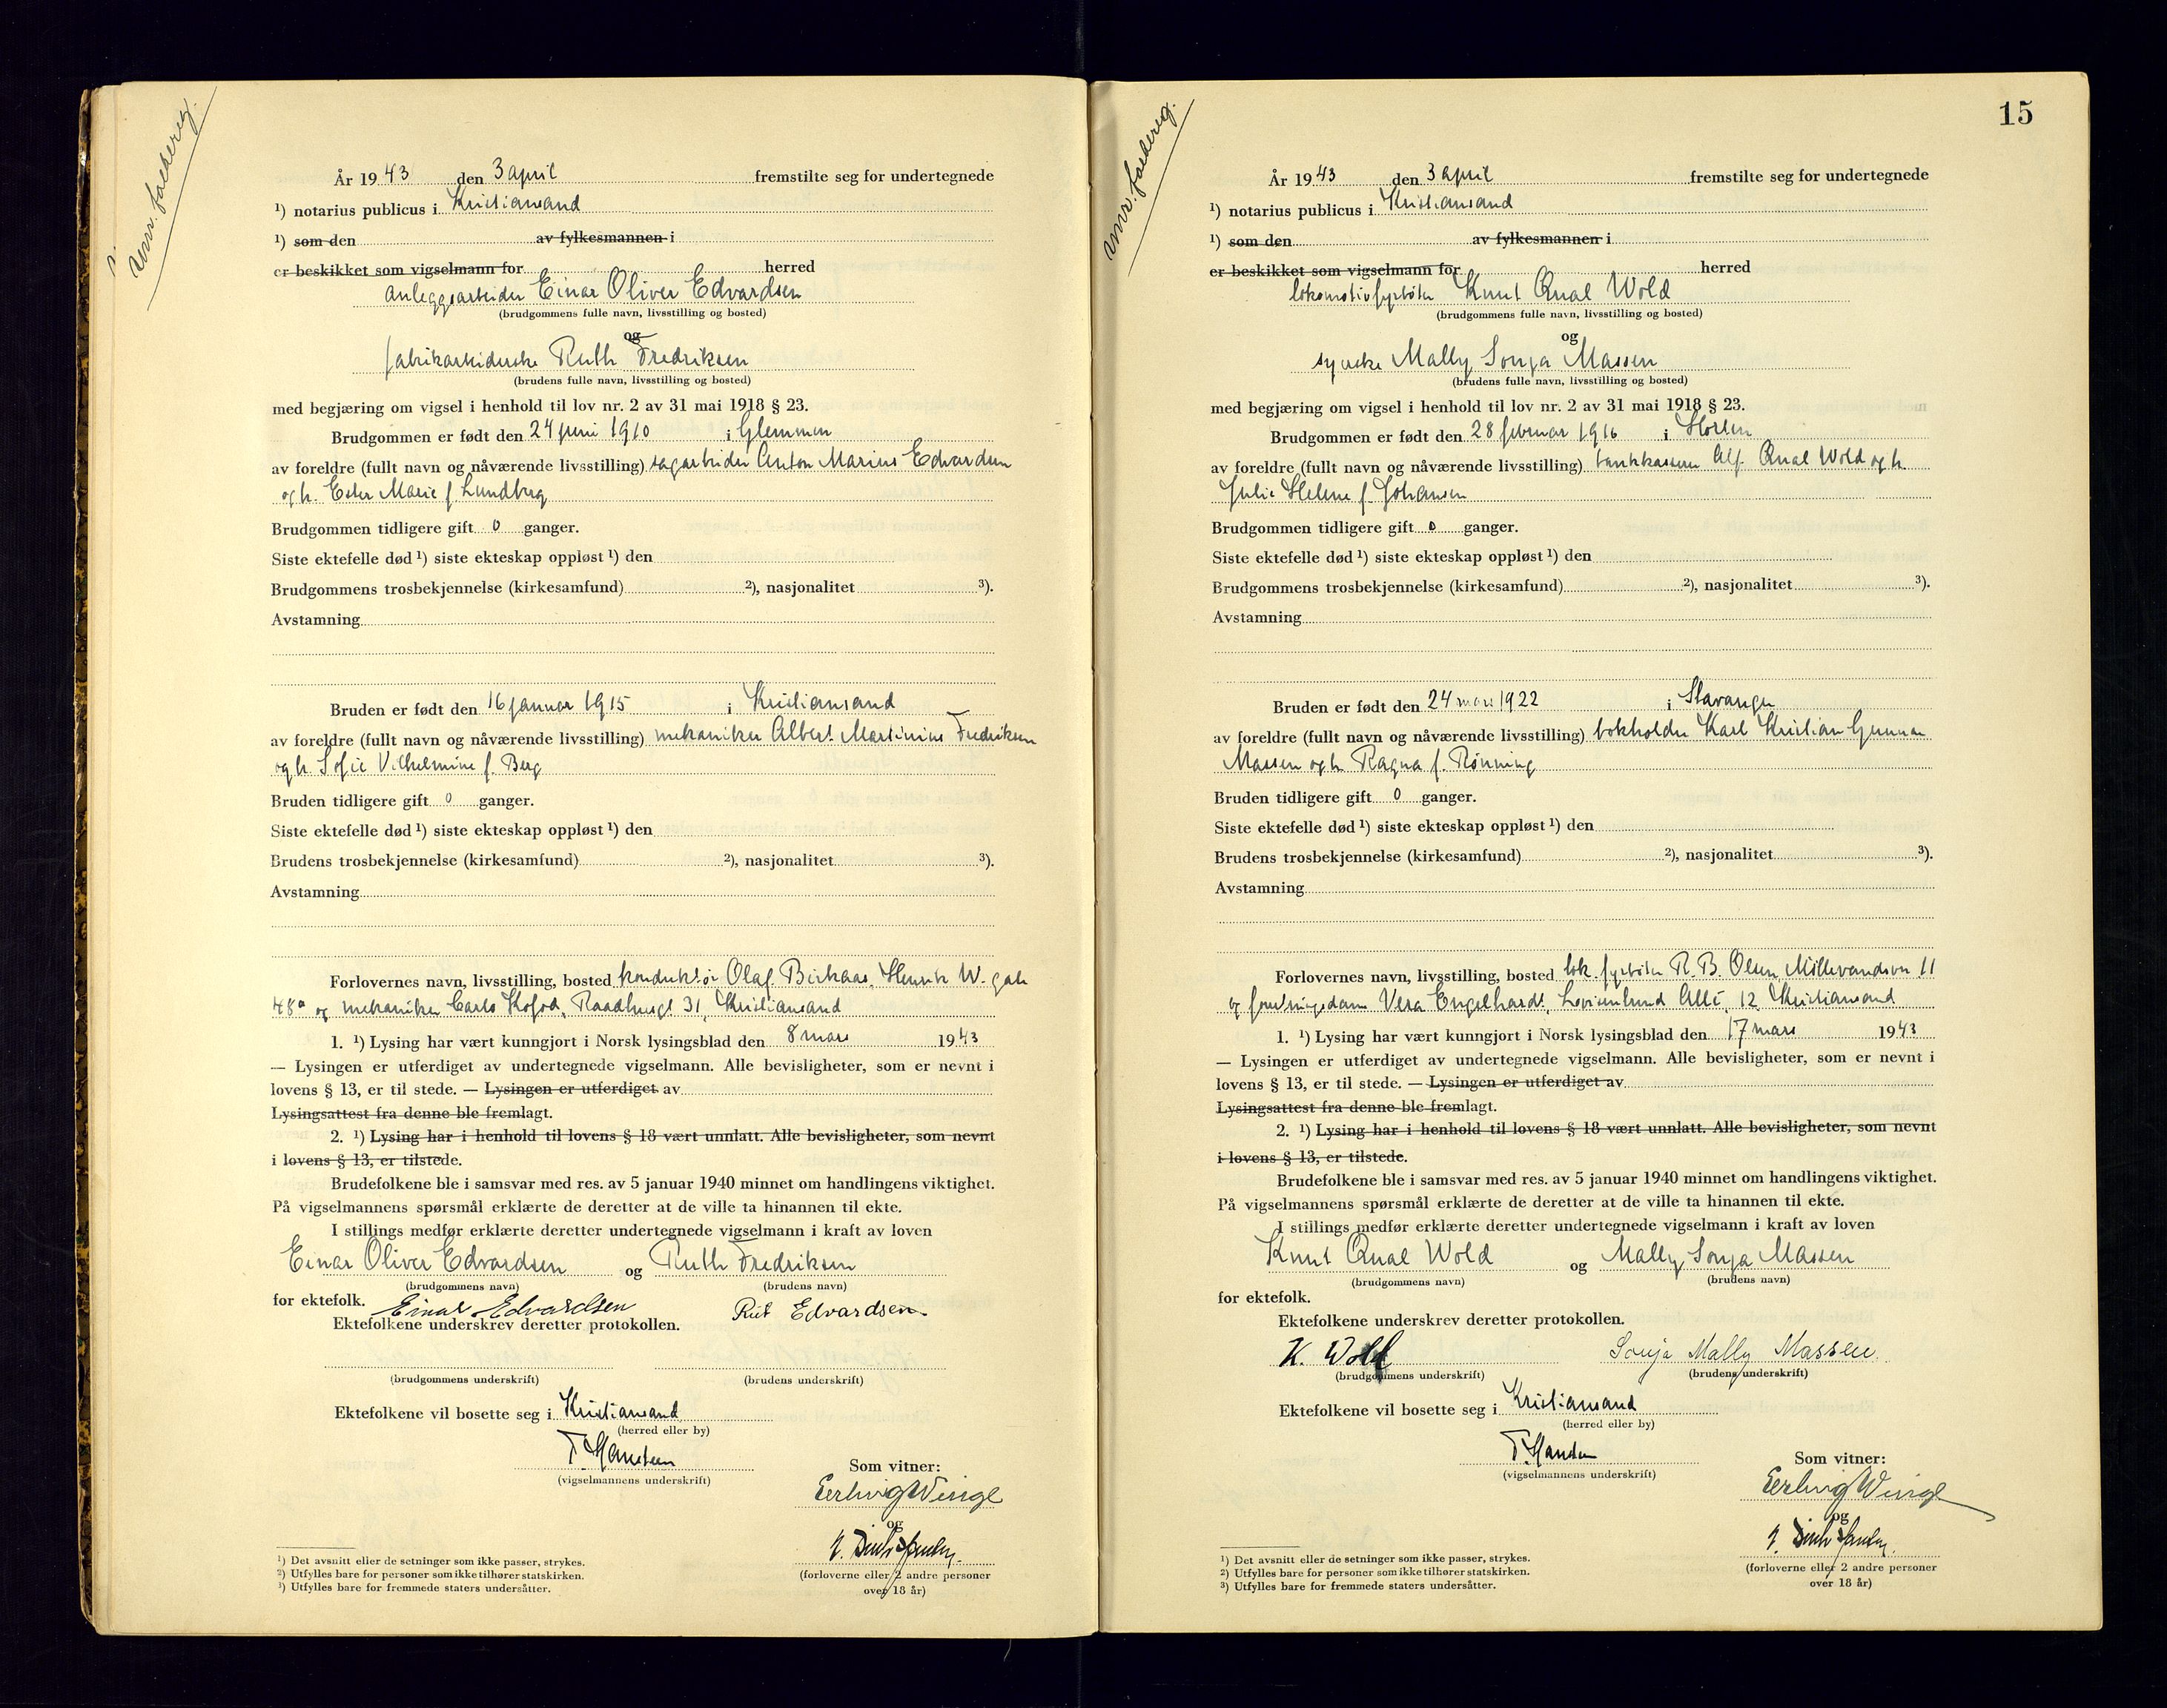 År 1943 den 3 april fremstilte seg for undertegnede
¹) notarius publicus i Kristiansand
¹) som den av fylkesmannen i
er beskikket som vigselmann for herred
anleggsarbeider Einar Oliver Edvardsen
(brudgommens fulle navn, livsstilling og bosted)
og
fabrikarbeiderske Ruth Fredriksen
(brudens fulle navn, livsstilling og bosted)
med begjæring om vigsel i henhold til lov nr. 2 av 31 mai 1918 § 23.
Brudgommen er født den 24 juni 1910 i Glemmen
av foreldre (fullt navn og nåværende livsstilling) sagarbeider Anton Marius Edvardsen
og h. Ester Marie f. Lundberg
Brudgommen tidligere gift 0 ganger.
Siste ektefelle død ¹) siste ekteskap oppløst ¹) den
Brudgommens trosbekjennelse (kirkesamfund) ²), nasjonalitet ³).
Avstamning
Bruden er født den 16 januar 1915 i Kristiansand
av foreldre (fullt navn og nåværende livsstilling) mekaniker Albert Martinius Fredriksen
og h. Sofie Vilhelmine f. Berg
Bruden tidligere gift 0 ganger.
Siste ektefelle død ¹) siste ekteskap oppløst ¹) den
Brudens trosbekjennelse (kirkesamfund) ²), nasjonalitet ³).
Avstamning
Forlovernes navn, livsstilling, bosted konduktør Olaf Birkaas, Henrik W. gate
48a og mekaniker Carlo Kofod, Raadhusgt 31, Kristiansand
1. ¹) Lysing har vært kunngjort i Norsk lysingsblad den 8 mars 1943
— Lysingen er utferdiget av undertegnede vigselmann. Alle bevisligheter, som er nevnt i
lovens § 13, er til stede. — Lysingen er utferdiget av
Lysingsattest fra denne ble fremlagt.
2. ¹) Lysing har i henhold til lovens § 18 vært unnlatt. Alle bevisligheter, som nevnt
i lovens § 13, er tilstede.
Brudefolkene ble i samsvar med res. av 5 januar 1940 minnet om handlingens viktighet.
På vigselmannens spørsmål erklærte de deretter at de ville ta hinannen til ekte.
I stillings medfør erklærte deretter undertegnede vigselmann i kraft av loven
Einar Oliver Edvardsen og Ruth Fredriksen
(brudgommens navn) (brudens navn)
for ektefolk. Einar Edvardsen Rut Edvardsen
Ektefolkene underskrev deretter protokollen.
(brudgommens underskrift) (brudens underskrift)
Ektefolkene vil bosette seg i Kristiansand
(herred eller by)
T. Hansteen
(vigselmannens underskrift)
Som vitner:
Erling Winge
og
(forloverne eller 2 andre personer
over 18 år)
¹) Det avsnitt eller de setninger som ikke passer, strykes.
²) Utfylles bare for personer som ikke tilhører statskirken.
³) Utfylles bare for fremmede staters undersåtter.
15
År 1943 den 3 april fremstilte seg for undertegnede
¹) notarius publicus i Kristiansand
¹) som den av fylkesmannen i
er beskikket som vigselmann for herred
lokomotivfyrbøter Knut Qual Wold
(brudgommens fulle navn, livsstilling og bosted)
og
syerske Mally Sonja Massen
(brudens fulle navn, livsstilling og bosted)
med begjæring om vigsel i henhold til lov nr. 2 av 31 mai 1918 § 23.
Brudgommen er født den 28 februar 1916 i Horten
av foreldre (fullt navn og nåværende livsstilling) bankkasserer Alf Qual Wold og h.
Julie Helene f. Johansen
Brudgommen tidligere gift 0 ganger.
Siste ektefelle død ¹) siste ekteskap oppløst ¹) den
Brudgommens trosbekjennelse (kirkesamfund) ²), nasjonalitet ³).
Avstamning
Bruden er født den 24 mars 1922 i Stavanger
av foreldre (fullt navn og nåværende livsstilling) bokholder Karl Kristian Gunnar
Massen og h. Ragna f. Rønning
Bruden tidligere gift 0 ganger.
Siste ektefelle død ¹) siste ekteskap oppløst ¹) den
Brudens trosbekjennelse (kirkesamfund) ²), nasjonalitet ³).
Avstamning
Forlovernes navn, livsstilling, bosted lok. fyrbøter R. B. Olsen, Møllevandsvn 11
og forretningsdame Vera Engelhardt, Lovisenlund Allé, 12 Kristiansand
1. ¹) Lysing har vært kunngjort i Norsk lysingsblad den 17 mars 1943
— Lysingen er utferdiget av undertegnede vigselmann. Alle bevisligheter, som er nevnt i
lovens § 13, er til stede. — Lysingen er utferdiget av
Lysingsattest fra denne ble fremlagt.
2. ¹) Lysing har i henhold til lovens § 18 vært unnlatt. Alle bevisligheter, som nevnt
i lovens § 13, er tilstede.
Brudefolkene ble i samsvar med res. av 5 januar 1940 minnet om handlingens viktighet.
På vigselmannens spørsmål erklærte de deretter at de ville ta hinannen til ekte.
I stillings medfør erklærte deretter undertegnede vigselmann i kraft av loven
Knut Qual Wold og Mally Sonja Massen
(brudgommens navn) (brudens navn)
for ektefolk.
Ektefolkene underskrev deretter protokollen.
K. Wold Sonja Mally Massen
(brudgommens underskrift) (brudens underskrift)
Ektefolkene vil bosette seg i Kristiansand
(herred eller by)
T. Hansteen
(vigselmannens underskrift)
Som vitner:
Erling Winge
og
(forloverne eller 2 andre personer
over 18 år)
¹) Det avsnitt eller de setninger som ikke passer, strykes.
²) Utfylles bare for personer som ikke tilhører statskirken.
³) Utfylles bare for fremmede staters undersåtter.